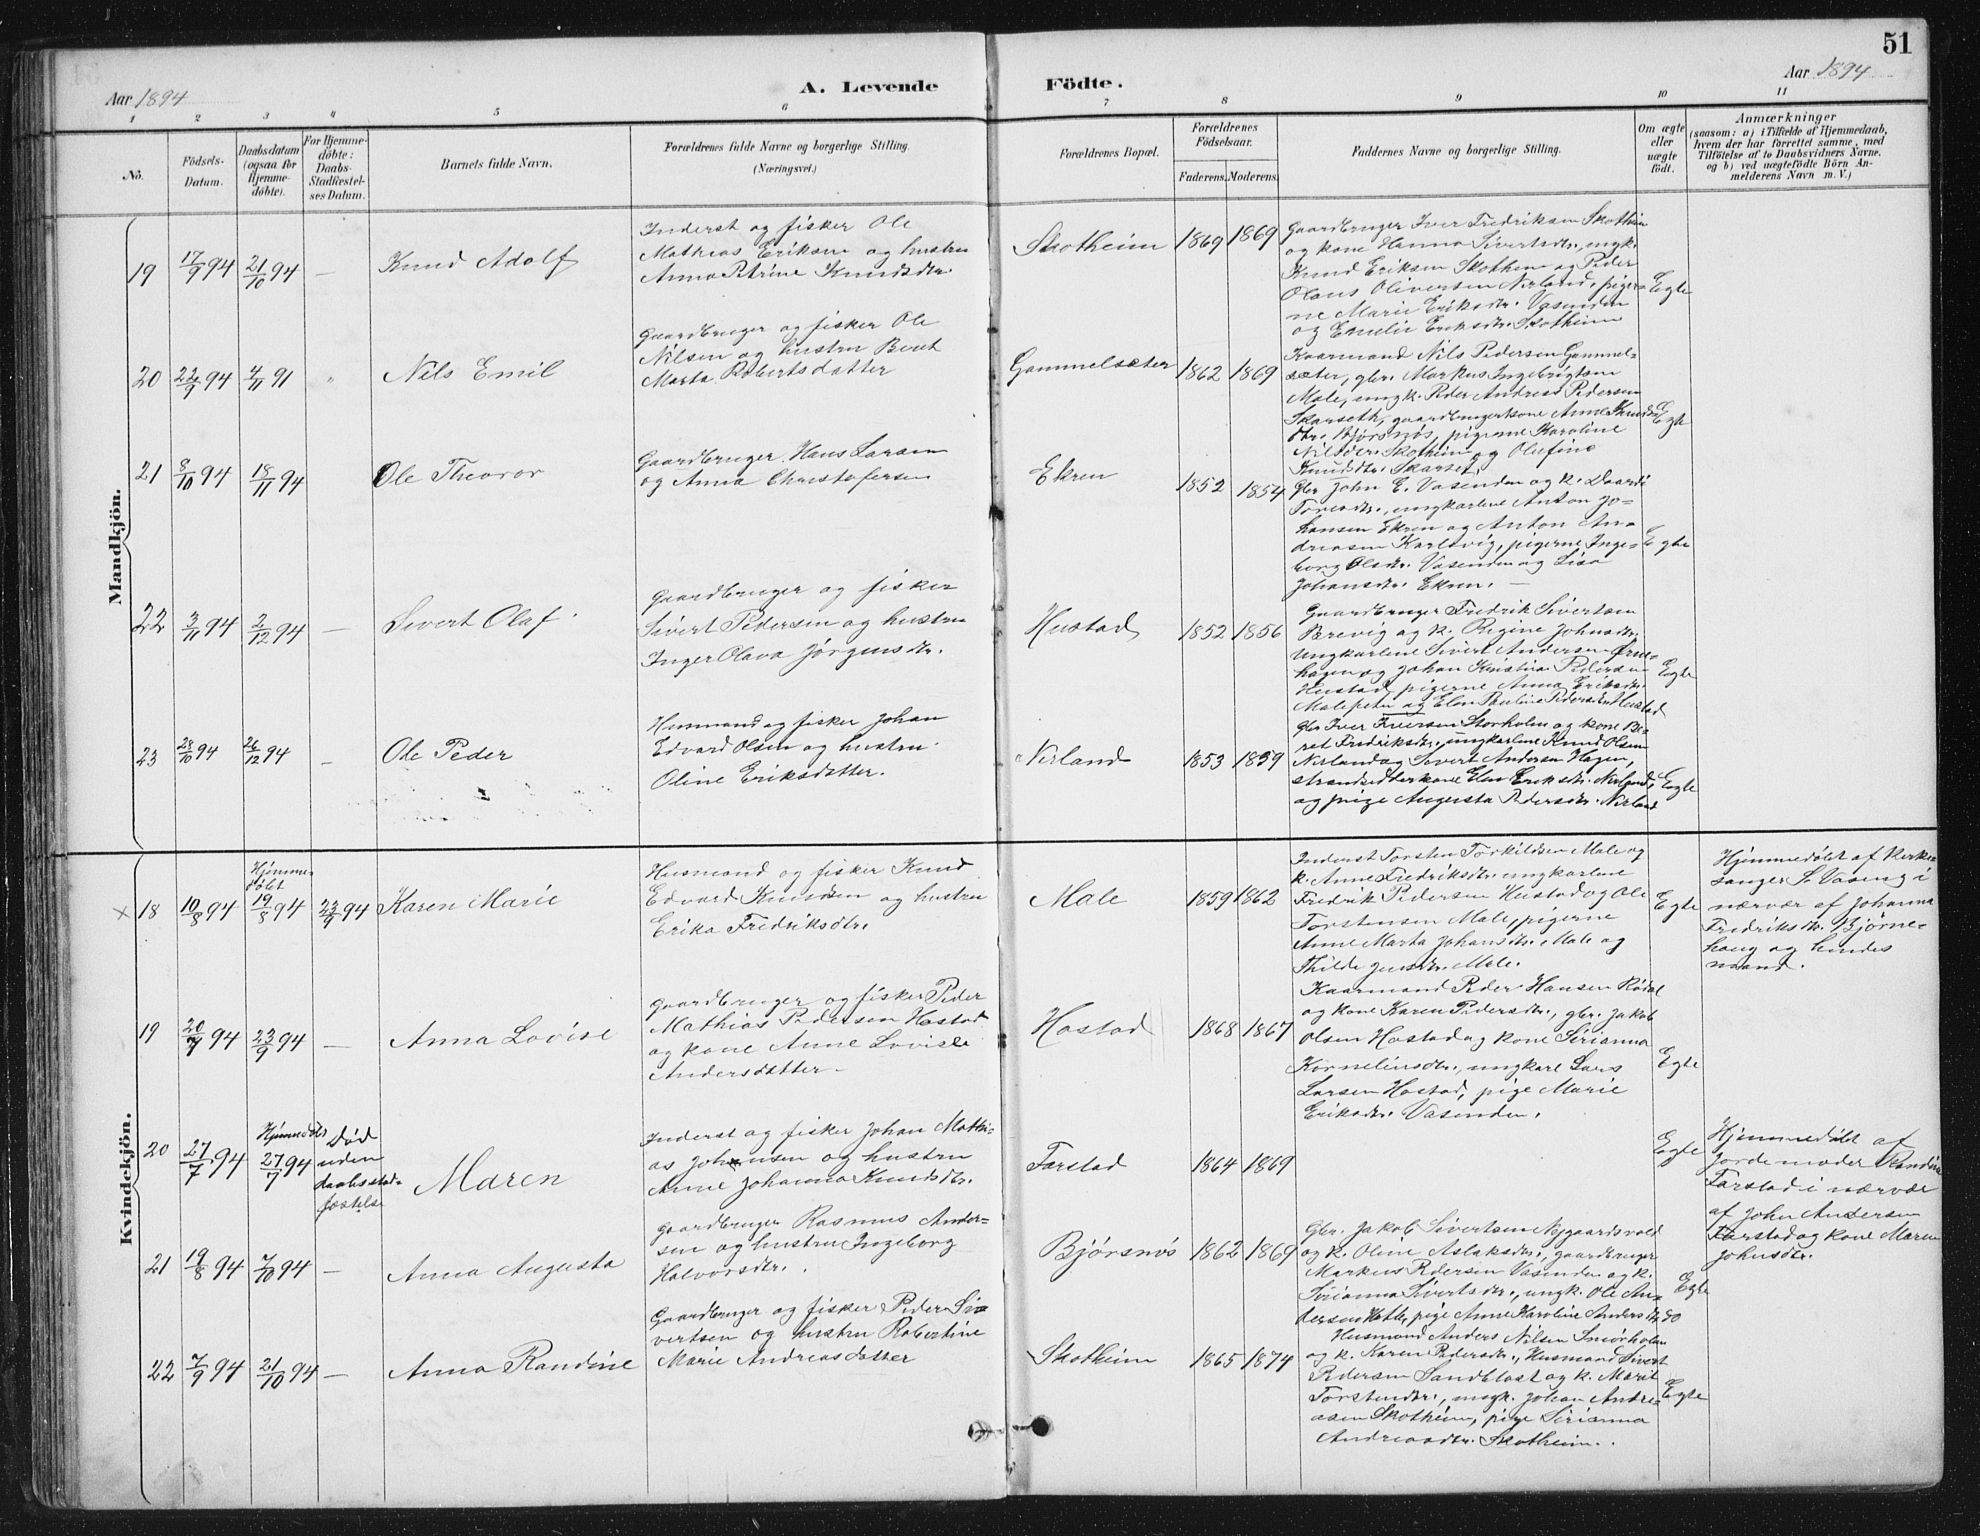 51
Aar 1894
A. Levende Födte.
Aar 1894
1 2 3 4 5 6 7 8 9 10 11
No.
Födsels-
Datum.
Daabsdatum
(ogsaa for
Hjemme-
döbte).
For Hjemme-
döbte:
Daabs-
Stadfæstel-
ses Datum.
Barnets fulde Navn.
Forældrenes fulde Navne og borgerlige Stilling.
(Næringsvei.)
Forældrenes Bopæl.
Forældrenes
Födselsaar.
Faderens. Moderens.
Faddernes Navne og borgerlige Stilling.
Om ægte
eller
uægte
født.
Anmærkninger
(saasom: a) i Tilfælde af Hjemmedaab,
hvem der har forrettet samme, med
Tilföielse af to Daabsvidners Navne,
og b) ved uægtefödte Börn An-
melderens Navn m. V.)
Mandkjön.
19 17/9 94 21/10 94 — Knud Adolf
Inderst og fisker Ole
Mathias Eriksen og hustru
Anna Petrine Knudsdtr.
Skotheim 1869 1869
Gaardbruger Iver Fredriksen Skotheim
og kone Hanna Sivertsdtr., ungk.
Knud Eriksen Skotheim og Peder
Olaus Oliversen Nerland, piger-
ne Marie Eriksdtr. Vasenden
og Emelie Eriksdtr. Skotheim
Egte
20 22/9 94 4/11 91 " Nils Emil
Gaardbruger og fisker Ole
Nilsen og hustru Berit
Marta Robertsdatter
Gammelsæter 1862 1869
Kaarmand Nils Pedersen Gammel-
sæter, gbr. Markus Ingebrigtsen
Male, ungk. Peder Andreas Pedersen
Skarseth, gaardbrugerkone Anne Knuds-
dtr. Bjørsnøs, pigerne Karoline
Nilsdtr. Skotheim og Olufine
Knudsdtr. Skarset.
Egte
21 8/10 94 18/11 94 Ole Theoror
Gaardbruger Hans Larsen
og Anna Christofersen
Ekren 1852 1854
Gbr John E. Vasenden og k.
ungkarlene Anton Jo-
hansen Ekren og Anton An-
dreasen Karlsvig, pigerne Inge-
borg Olsdtr. Vasenden og Lisa
Johansdtr. Ekren. —
Egte
22 3/11 94 2/12 94 — Sivert Olaf
Gaardbruger og fisker
Sivert Pedersen og hustru
Inger Olava Jørgensdtr.
Hustad 1852 1856
Gaardbruger Fredrik Sivertsen
Brevig og k. Regine Johnsdtr.
Ungkarlene Sivert Andersen
hagen og Johan Kristian Pedersen
Hustad, pigerne Anna Eriksdtr.
og Elen Pauline Pedersdtr. Hustad
Egte
23 28/10 94 26/12 94 — Ole Peder
Husmand og fisker Johan
Edvard Olsen og hustru
Oline Eriksdatter.
Nerland 1853 1859
Gbr Iver Iversen Storholm og kone Be-
ret Fredriksdtr., ungkarlene Knud Olsen
Nerland og Sivert Andersen Hagen,
strandsidderkone Elen Eriksdtr. Nerland,
og pige Augusta Pedersdtr. Nerland
Egte
Kvindekjön.
× 18 10/8 94 Hjemme-
døbt
19/8 94 23/9 94 Karen Marie
Husmand og fisker Knud
Edvard Knudsen og hustru
Erika Fredriksdtr.
Male 1859 1862
Inderst Torsten Torkildsen Male og
k. Anne Fredriksdtr. ungkarlene
Fredrik Pedersen Hustad og Ole
Torstensen Male, pigerne
Anne Marta Johansdtr. Male og
Thilde Male.
Egte
Hjemmedøbt af Kirke-
sanger S. Vaseng i
nærvær af Johanna
Fredriksdtr. Bjørne-
haug og hendes
mand.
19 20/7 94 23/9 94 — Anna Lovise
Gaardbruger og fisker Peder
Mathias Pedersen Hostad
og kone Anne Lovise
Andersdatter —
Hostad 1868 1867
Kaarmand Peder Hansen Rødal
og kone Karen Pedersdtr., gbr. Jakob
Olsen Hostad og kone Serianna
Korneliusdtr., ungkarl Lars
Larsen Hostad, pige Marie
Eriksdtr. Vasenden.
Egte
20 27/7 94 Hjemmedøbt
27/7 94 Død
uden
daabsstad-
fæstelse
Maren
Inderst og fisker Johan Mathi-
as Johansen og hustru
Anne Johanna Knudsdtr.
Farstad 1864 1869
Egte
Hjemmedøbt af
Jordemoder Randine
Farstad i nærvær
af John Andersen
Farstad og kone Maren
Johnsdtr.
21 19/8 94 7/10 94 — Anna Augusta
Gaardbruger Rasmus Ander-
sen og hustru Ingeborg
Halvorsdtr.
Bjørsnøs 1862 1869
Gbr. Jakob Sivertsen Nygaardsvold
og k. Oline Aslaksdtr., gaardbruger
Markus Pedersen Vasenden og k.
Serianna Sivertsdtr., ungk. Ole An-
dersen Hatle, pige Anne Karoline Andersdtr do
Egte
22 7/9 94 21/10 94 — Anna Randine
Gaardbruger og fisker Peder Si-
vertsen og hustru Robertine
Marie Andreasdatter
Skotheim 1865 1874
Husmand Anders Nilsen Smørholm
og k. Karen Pedersdtr., Husmand Sivert
Pedersen Sandblost og k. Marit
Torstensdtr., ungk. Johan Andre-
asen Skotheim, pige Serianna
Andreasdtr. Skotheim.
Egte